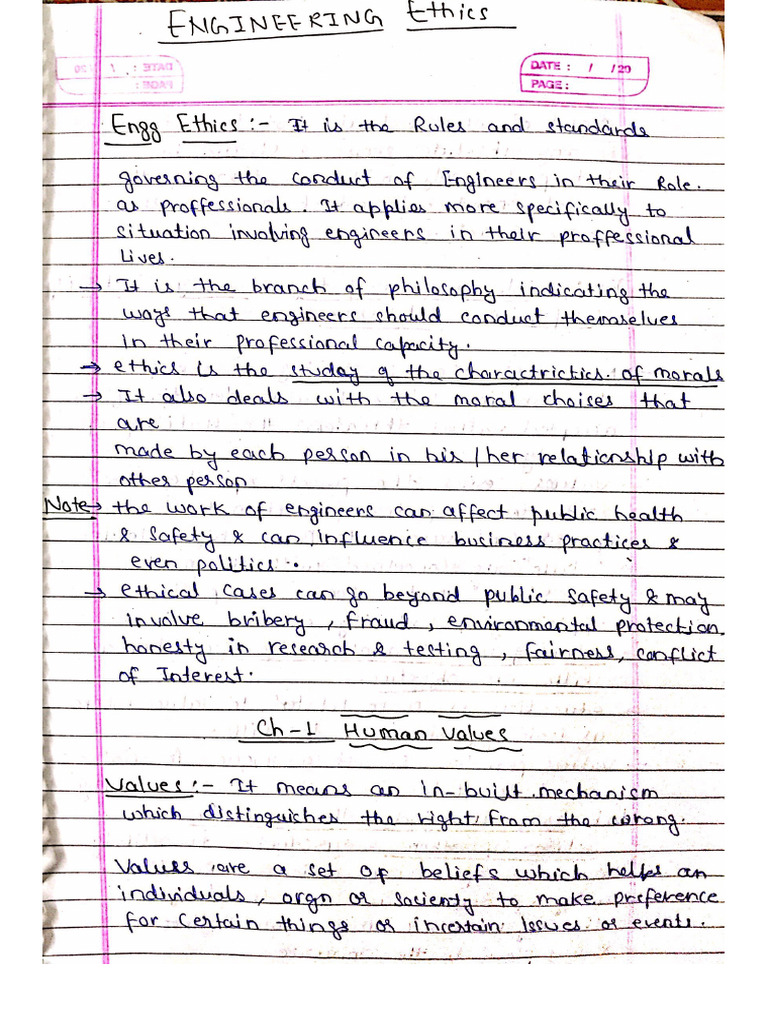 ENGINEERING Ethics
DATE : / /20
PAGE:
Engg Ethics :- It is the Rules and standards
governing the conduct of Engineers in their Role.
as proffessionals. It applies more specifically to
situation involving engineers in their proffessional
Lives.
→ It is the branch of philosophy indicating the
ways that engineers should conduct themselves
in their professional capacity.
→ ethics is the studay of the charactrictics. of morals
→ It also deals with the moral choises that
are
made by each person in his/her relationship with
other person
Note→ the work of engineers can affect public health
& safety & can influence business practices &
even politics.
→ ethical cases can go beyond public safety & may
involve bribery, fraud, environmental protection,
honesty in research & testing, fairness, conflict
of Interest.
Ch-1 Human values
values :- It means an in-built mechanism
which distinguiches the right from the wrong.
values are a set of beliefs which helps an
individuals, orgn or socienty to make preference
for certain things or incertain Issues or events.